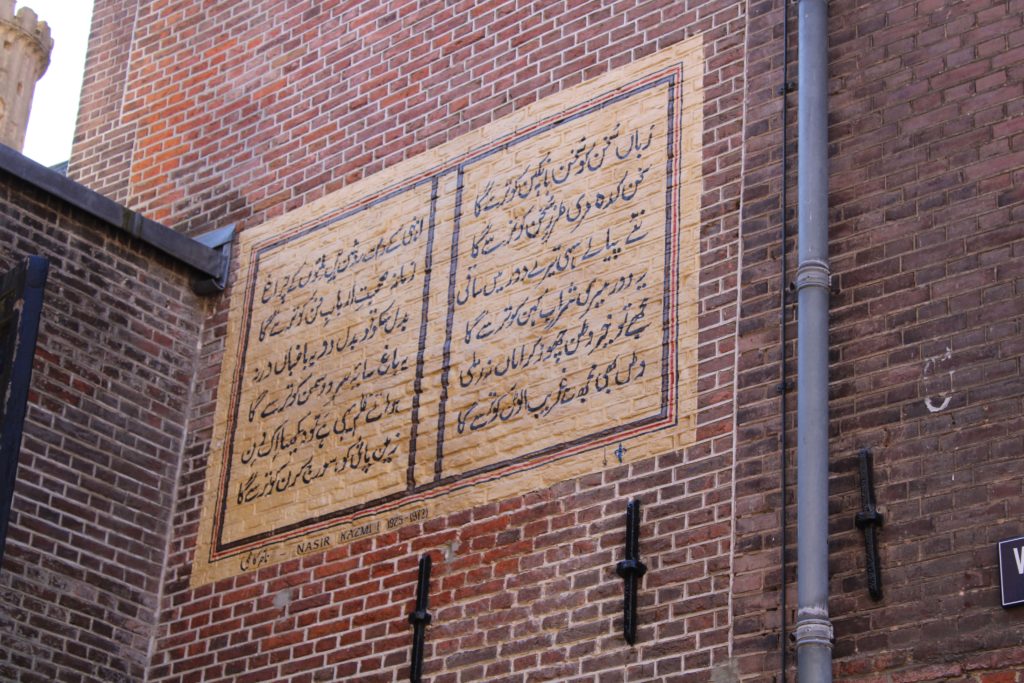 زباں سخن کو سخن بانکپن کو ترسے گا
سخن کدہ مری طرزِ سخن کو ترسے گا
نئے پیالے سہی تیرے دور میں ساقی
یہ دور میری شرابِ کہن کو ترسے گا
مجھے تو خیر وطن چھوڑ کر اماں نہ ملی
وطن بھی مجھ سے غریب الوطن کو ترسے گا
انہی کے دم سے فروزاں ہیں ملتوں کے چراغ
زمانہ صحبتِ اربابِ فن کو ترسے گا
بدل سکو تو بدل دو یہ باغباں ورنہ
یہ باغ سایۂ سرو و سمن کو ترسے گا
ہوائے ظلم یہی ہے تو دیکھنا اک دن
زمین پانی کو سورج کرن کو ترسے گا
ناصر کاظمی - NASIR KAZMI (1925-1972)